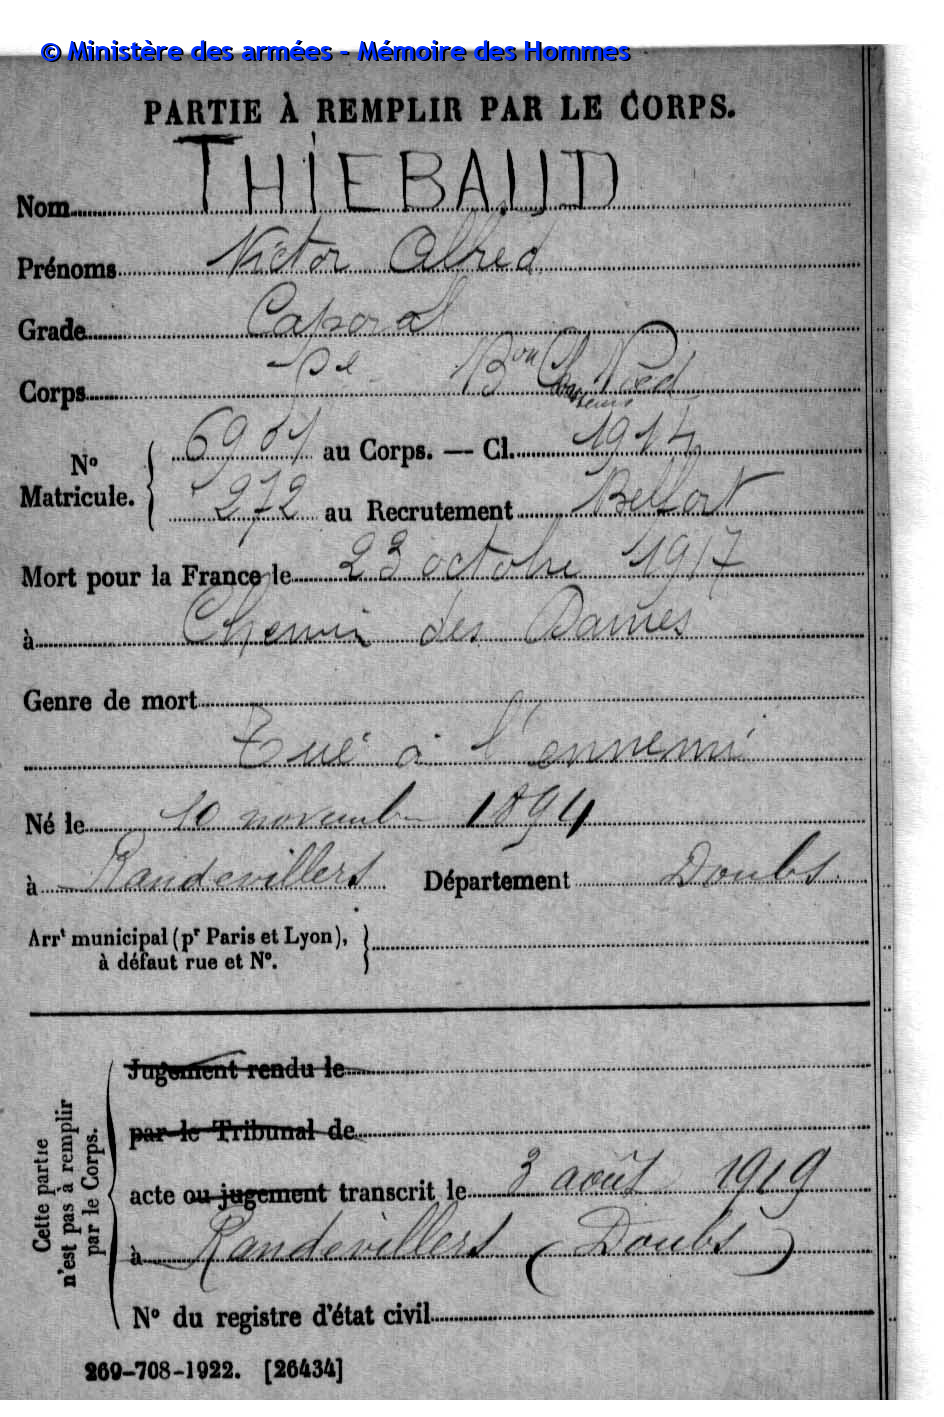 © Ministère des armées - Mémoire des Hommes
PARTIE À REMPLIR PAR LE CORPS.
Nom THIEBAUD
Prénoms Victor Alfred
Grade Caporal
Corps Bon Chasseurs Pied
6901 au Corps. — Cl. 1914
No Matricule.
272 au Recrutement Belfort
Mort pour la France le 23 octobre 1917
à Chemin des Dames
Genre de mort
Tué à l'ennemi
Né le 10 novembre 1894
à Randevillers Département Doubs
Arrt municipal (pr Paris et Lyon),
à défaut rue et No.
Jugement rendu le
par le Tribunal de
acte ou jugement transcrit le 3 août 1919
à Randevillers (Doubs)
No du registre d'état civil
Cette partie
n'est pas à remplir
par le Corps.
269-708-1922. [26434]